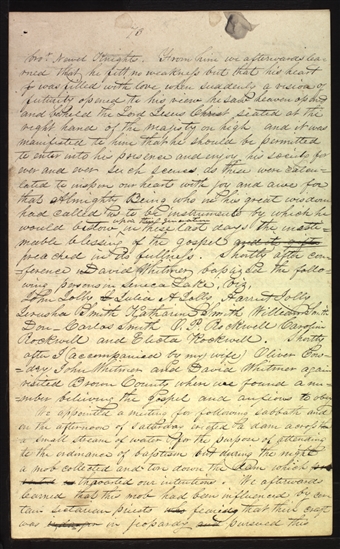 13
bro.r Newel Knights. From him we afterwards lea
rned that he felt no weakness but that his heart
was filled with love when suddenly a vision of
futurity opened to his view he saw heaven opend
and beheld the Lord Jesus Christ seated at the
right hand of the majesty on high and it was
manifested to him that he should be permitted
to enter into his presence and enjoy his society for
ever and ever such scenes as these were calcu-
lated to inspire our hearts with joy and awe for
that Almighty Being who in his great wisdom
had called us to be instruments by which he
upon
would bestow in these last days the inesti-
meable blessing of the gospel
preached in its fullness. Shortly after con-
ference David Whitmer bapazed the follo-
wing persons in Seneca Lake, viz.
John Jolly & Julia A Jolly Harriet Jolly
Jerusha Smith Katharine Smith William Smith
Don Carlos Smith O. P. Rockwell Caroline
Rockwell and Electa Rockwell. Shortly
after I (accompanied by my wife) Oliver Cow-
dry John Whitmer and David Whitmer again
visited Broom County when we found a nu-
mber believing the gospel and anxious to obey
We appointed a meeting for following sabbath and
on the afternoon of saturday erected a dam across
a small stream of water for the purpose of attending
to the ordinance of baptism but during the night
a mob collected and tore down the dam which
thwarted our intentions. We afterwards
learned that this mob had been influenced by cer
tain sectarian priests who feared that their craft
was in jeopardy and pursued this